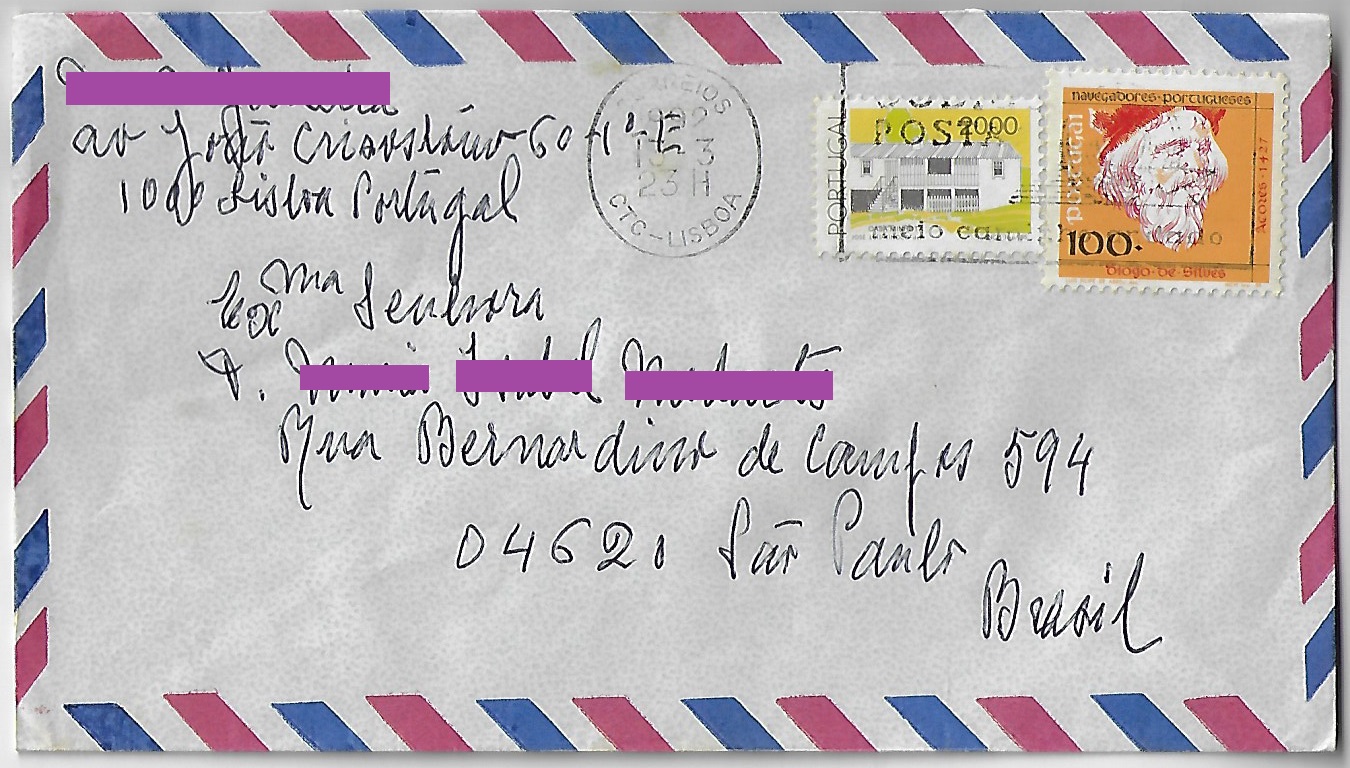 av João Crisóstomo 60-1º-E
1000 Lisboa Portugal
CORREIOS
1992
3
23 H
CTC-LISBOA
PORTUGAL
2000
CÓDIGO POSTAL
meio caminho andado
navegadores-portugueses
portugal
Açores-1427
100.
Diogo-de-Silves
Exma Senhora
D.
Rua Bernardino de Campos 594
04620 São Paulo
Brasil